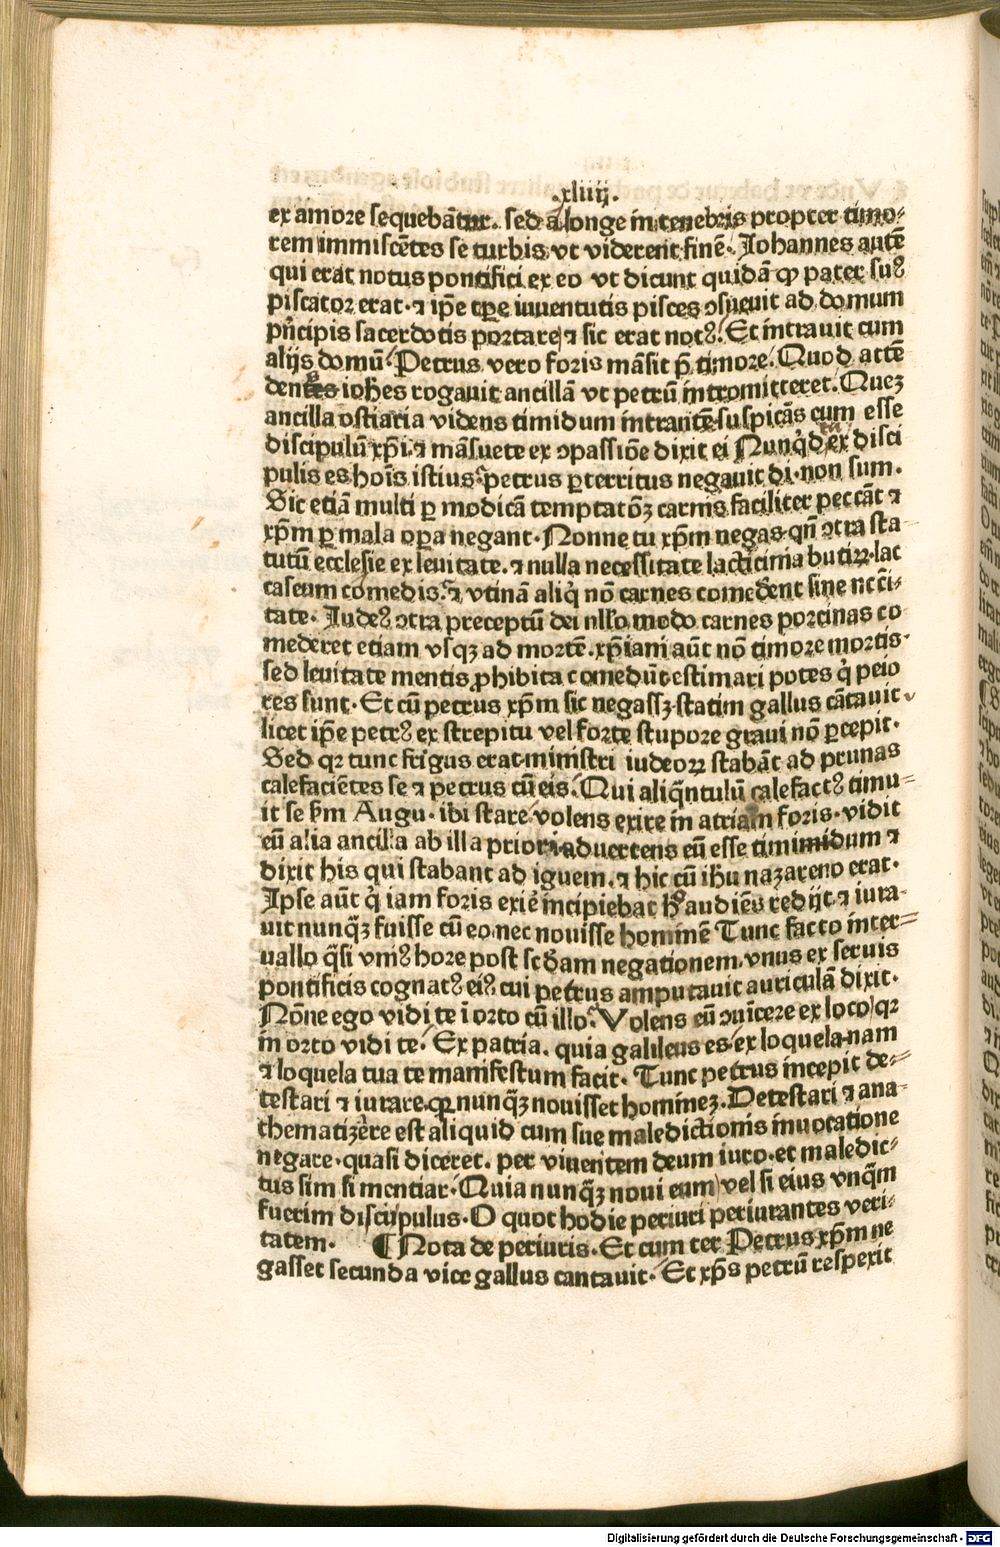 .xliiij.
ex amore sequebãtur. sed a longe in tenebris propter timo⸗
rem immiscẽtes se turbis vt viderent finẽ. Iohannes autẽ
qui erat notus pontifici ex eo vt dicunt quidã ꝙ pater suꝰ
piscator erat. ⁊ ip̃e tꝑe iuuentutis pisces ↄsueuit ad domum
pñcipis sacerdotis portare ⁊ sic erat notꝰ. Et intrauit cum
alijs domũ. Petrus vero foris mãsit p̃ timore. Quod attẽ
dentes iohẽs rogauit ancillã vt petrũ intromitteret. Quez
ancilla ostiaria videns timidum intrantẽ suspicãs eum esse
discipulũ xp̃i. ⁊ mãsuete ex ↄpassiõe dixit ei Nunq̇d tu ex disci
pulis es hoĩs istius. petrus ꝑterritus negauit di. non sum.
Sic etiã multi ꝑ modicã temptatõꝫ carnis faciliter peccãt ⁊
xp̃m ꝑ mala oꝑa negant. Nonne tu xp̃m negas qñ ↄtra sta
tutũ ecclesie ex leuitate. ⁊ nulla necessitate lacticinia butiꝝ lac
caseum comedis. ⁊ vtinã aliq̇ nõ carnes comedẽnt sine nec̃i⸗
tate. Iudeꝰ ↄtra preceptũ dei nll̃o modo carnes porcinas co
mederet etiam vsqꝫ ad mortẽ. xp̃iani aũt nõ timore mortis.
sed leuitate mentis ꝓhibita comedũt estimari potes q̇ peio
res sunt. Et cũ petrus xp̃m sic negassꝫ statim gallus cãtauit.
licet ip̃e petrꝰ ex strepitu vel forte stupore graui nõ ꝑcepit.
Sed qꝛ tunc frigus erat ministri iudeoꝝ stabãt ad prunas
calefaciẽtes se ⁊ petrus cũ eis. Qui aliq̃ntulũ calefactꝰ timu⸗
it se ẜm Augu. ibi stare volens exire in atrium foris. vidit
eũ alia ancilla ab illa priori aduertens eũ esse timimidum ⁊
dixit his qui stabant ad ignem. ⁊ hic cũ ih̃u nazareno erat.
Ipse aũt q̇ iam foris exiẽ incipiebat hᵒ audiẽs redijt ⁊ iura⸗
uit nunq̃ꝫ fuisse cũ eo nec nouisse hominẽ Tunc facto inter⸗
uallo q̃si vniꝰ hore post scđam negationem. vnus ex seruis
pontificis cognatꝰ eiꝰ cui petrus amputauit auriculã dixit.
Nõne ego vidi te ĩ orto cũ illo. Volens eũ ↄuĩcere ex loco qꝛ
in orto vidi te. Ex patria. quia galileus es ex loquela nam
⁊ loquela tua te manifestum facit. Tunc petrus incepit de⸗
testari ⁊ iurare. qꝛ nunq̃ꝫ nouisset homineꝫ. Detestari ⁊ ana⸗
thematizẽre est aliquid cum sue maledictionis inuocatione
negare. quasi diceret. per viuentem deum iuro. et maledic⸗
tus sim si mentiar. Quia nunq̃ꝫ noui eum vel si eius vnq̃m
fuerim discipulus. O quot hodie periuri periurantes veri⸗
tatem. ¶ Nota de periuris. Et cum ter Petrus xp̃m ne
gasset secunda vice gallus cantauit. Et xp̃s petrũ respexit
Digitalisierung gefördert durch die Deutsche Forschungsgemeinschaft - DFG